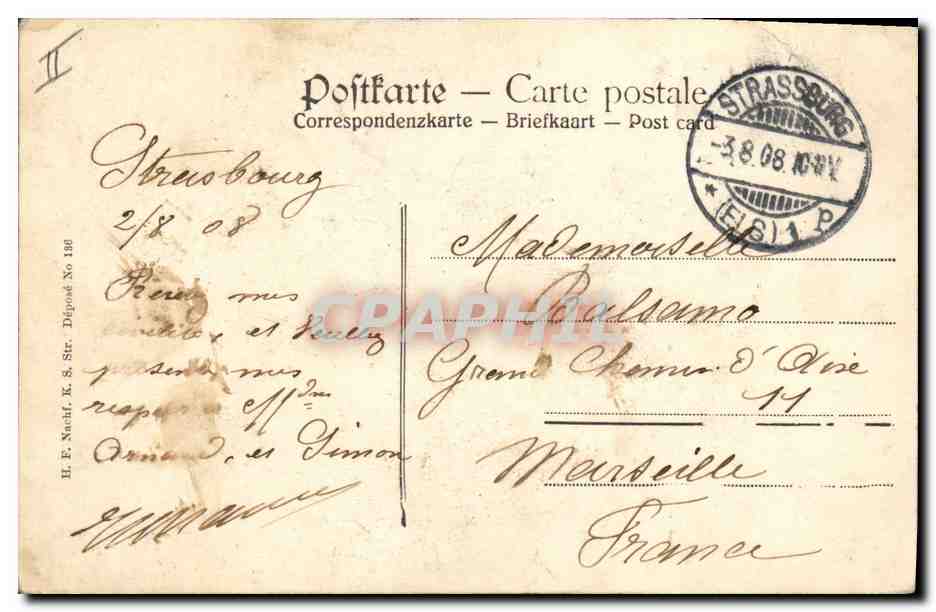 II
Postkarte — Carte postale
Correspondenzkarte — Briefkaart — Post card
STRASSBURG
-3.8.08.10-11V.
* (ELS) 1 P
Strasbourg
2/8 08
mes
et Veuillez
presenter mes
respects a Mme
Armand, et Simon
Mademoiselle
Balsamo
Grand Chemin d'Aix
11
Marseille
France
H. F. Nachf. K. S. Str. Déposé No 136
CPAPHIL